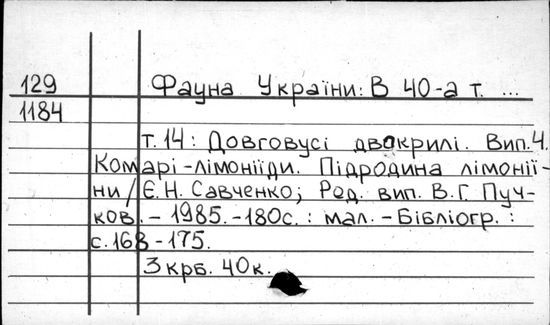 129 Фауна України: В 40-а т. ...
1184
т. 14: Довговусі двокрилі. Вип. 4.
Комарі-лімоніїди. Підродина лімонії-
ни / Є. Н. Савченко; Ред. вип. В. Г. Пуч-
ков. - 1985. - 180с. : мал. - Бібліогр. :
с. 168-175.
3 крб. 40 к.